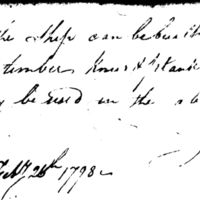 the Ship can be built
timber Knees &
y be used in the
Feby 26th 1798